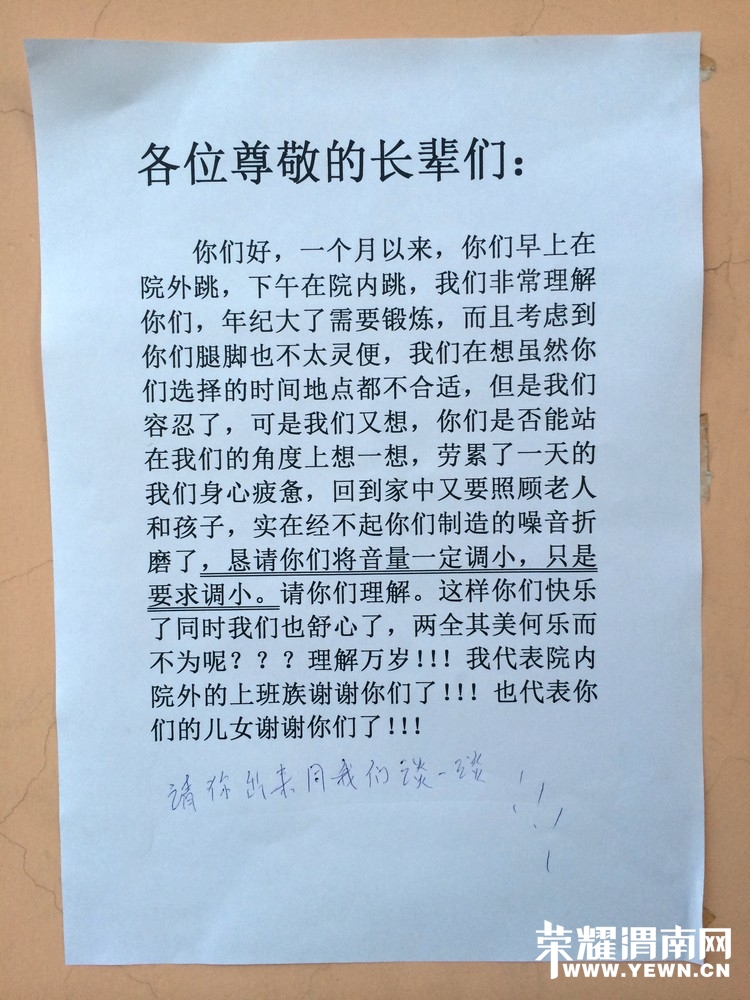 各位尊敬的长辈们：
你们好，一个月以来，你们早上在
院外跳，下午在院内跳，我们非常理解
你们，年纪大了需要锻炼，而且考虑到
你们腿脚也不太灵便，我们在想虽然你
们选择的时间地点都不合适，但是我们
容忍了，可是我们又想，你们是否能站
在我们的角度上想一想，劳累了一天的
我们身心疲惫，回到家中又要照顾老人
和孩子，实在经不起你们制造的噪音折
磨了，恳请你们将音量一定调小，只是
要求调小。请你们理解。这样你们快乐
了同时我们也舒心了，两全其美何乐而
不为呢？？？理解万岁!!!我代表院内
院外的上班族谢谢你们了!!!也代表你
们的儿女谢谢你们了!!!
请你出来同我们谈一谈!!!!
荣耀渭南网
WWW.YEWN.CN